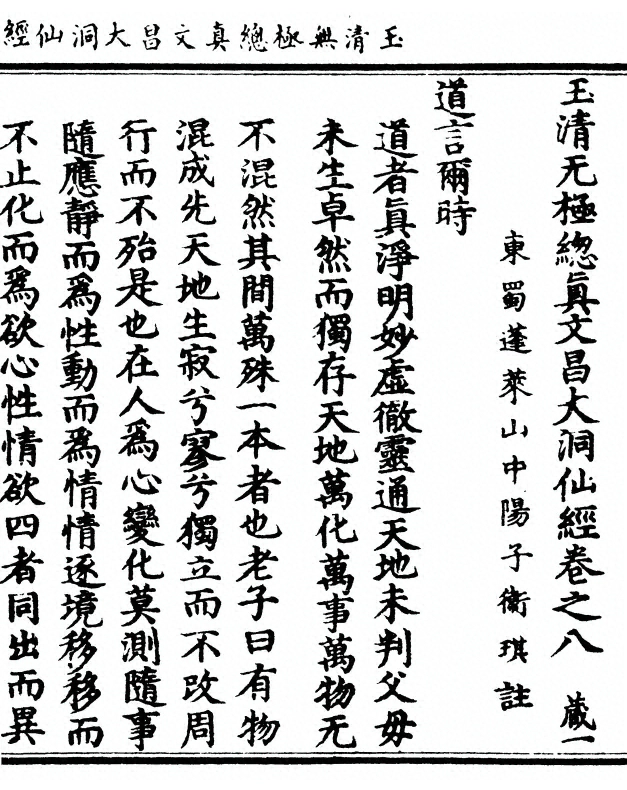 玉清無極總真文昌大洞仙經
玉清无極總眞文昌大洞仙經卷之八 藏一
東蜀蓬萊山中陽子衞琪註
道言爾時
道者眞淨明妙虛徹靈通天地未判父母
未生卓然而獨存天地萬化萬事萬物无
不混然其間萬殊一本者也老子曰有物
混成先天地生寂兮寥兮獨立而不改周
行而不殆是也在人爲心變化莫測隨事
隨應靜而爲性動而爲情情逐境移移而
不止化而爲欲心性情欲四者同出而異